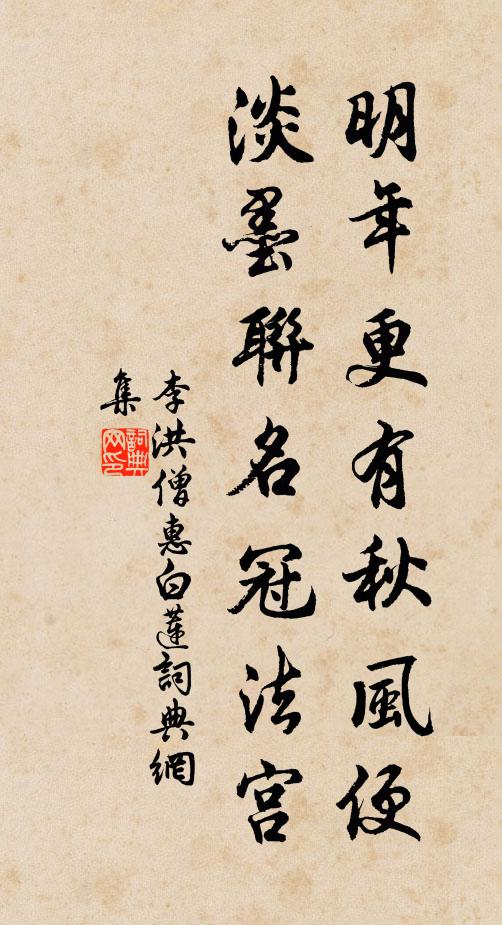 明年更有秋風便
淡墨聯名冠法宮
李洪僧惠白蓮詞典網
集
詞典網印